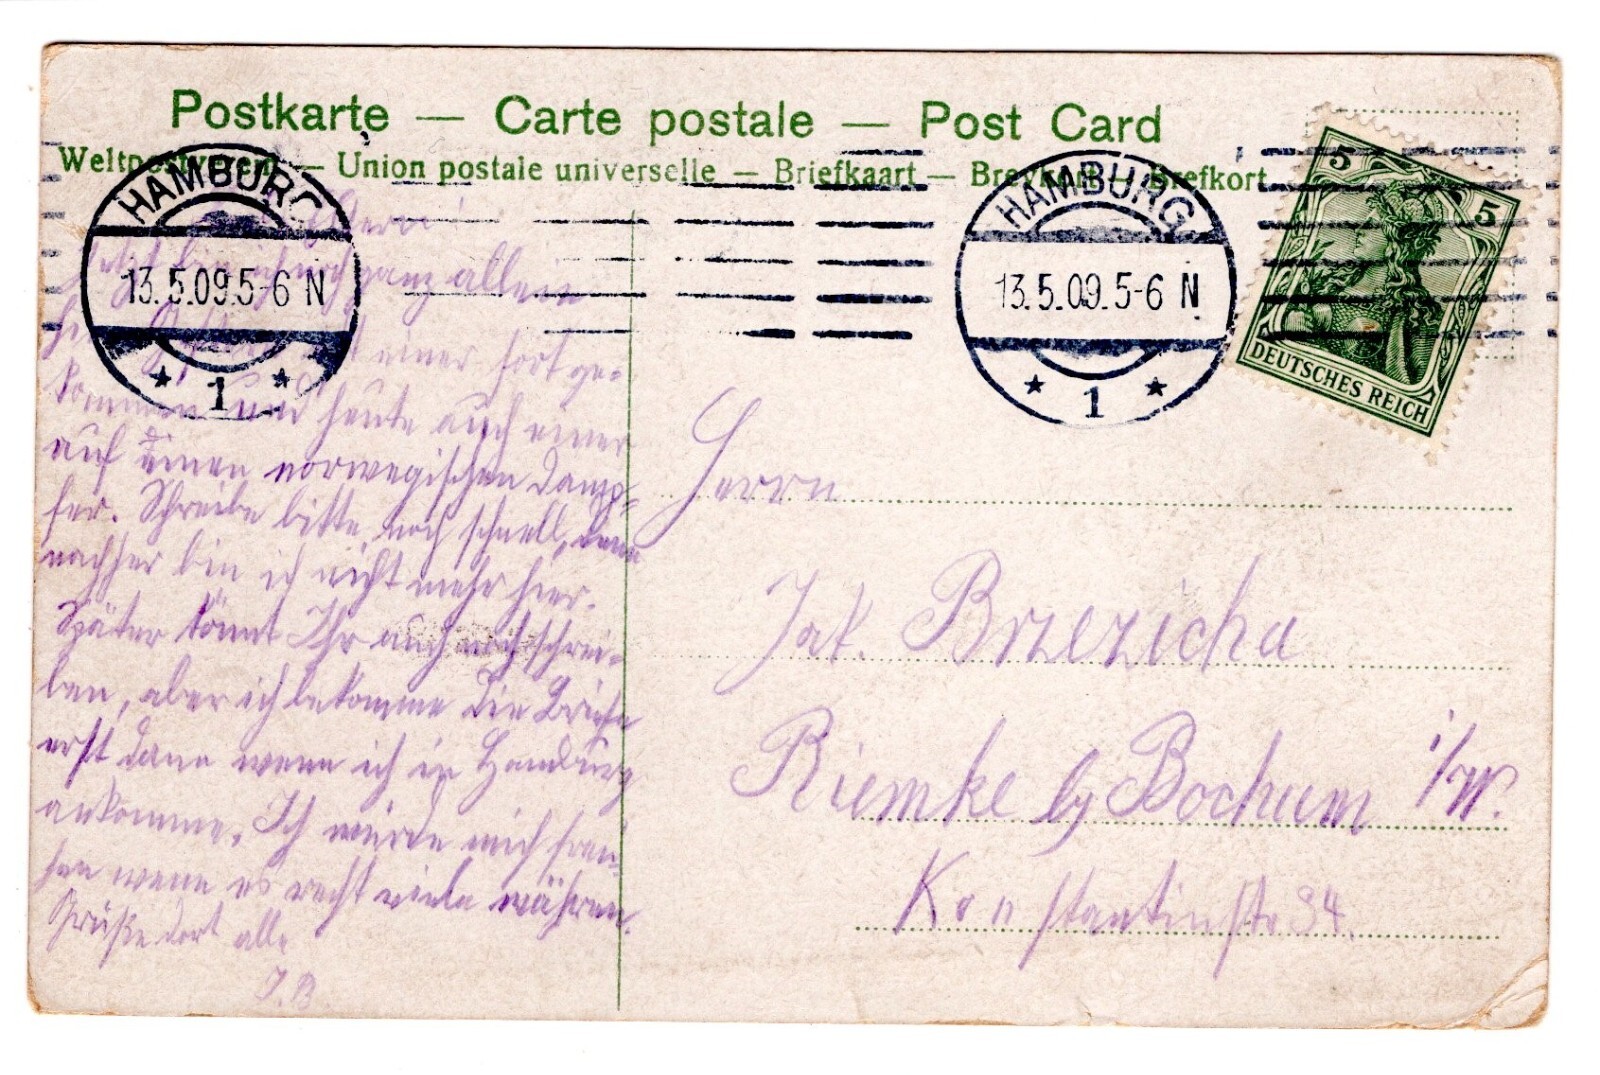 Postkarte — Carte postale — Post Card
Weltpostverein — Union postale universelle — Briefkaart — Brevkort — Brefkort
HAMBURG
13.5.09.5-6 N
* 1 *
HAMBURG
13.5.09.5-6 N
* 1 *
5 5
DEUTSCHES REICH
Eltern!
Jetzt bin ich noch ganz allein
hier. Gestern ist einer fort ge-
kommen und heute auch einer
auf einen norwegischen Damp-
fer. Schreibe bitte noch schnell, denn
nachher bin ich nicht mehr hier.
Später könnt Ihr auch noch schrei-
ben, aber ich bekomme die Briefe
erst dann wenn ich in Hamburg
ankomme. Ich würde mich freu-
en wenn es recht viele wären.
Grüße dort alle
J. B
Herrn
Jak. Brzezicha
Riemke b/ Bochum i/W.
Konstantinstr 34.